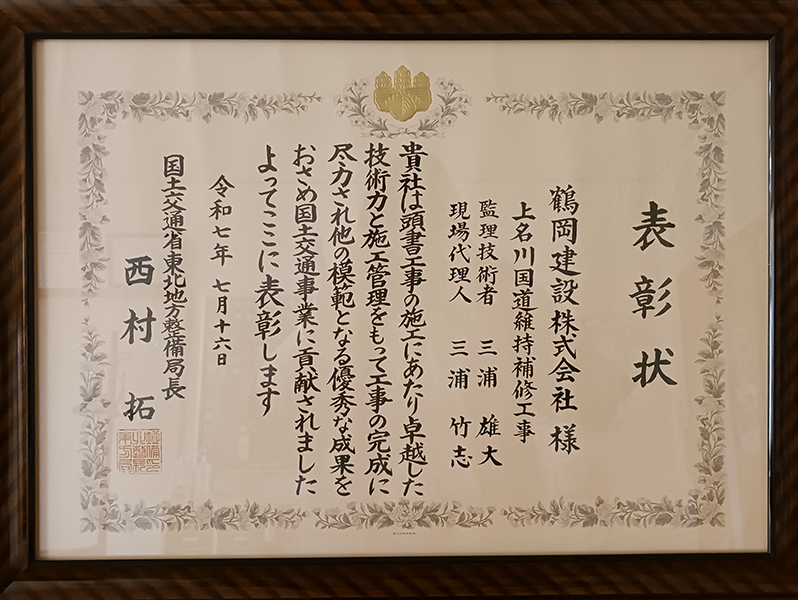 表彰状
鶴岡建設株式会社 様
上名川国道維持補修工事
監理技術者 三浦 雄大
現場代理人 三浦 竹志
貴社は頭書工事の施工にあたり卓越した
技術力と施工管理をもって工事の完成に
尽力され他の模範となる優秀な成果を
おさめ国土交通事業に貢献されました
よってここに表彰します
令和七年 七月十六日
国土交通省東北地方整備局長
西村 拓